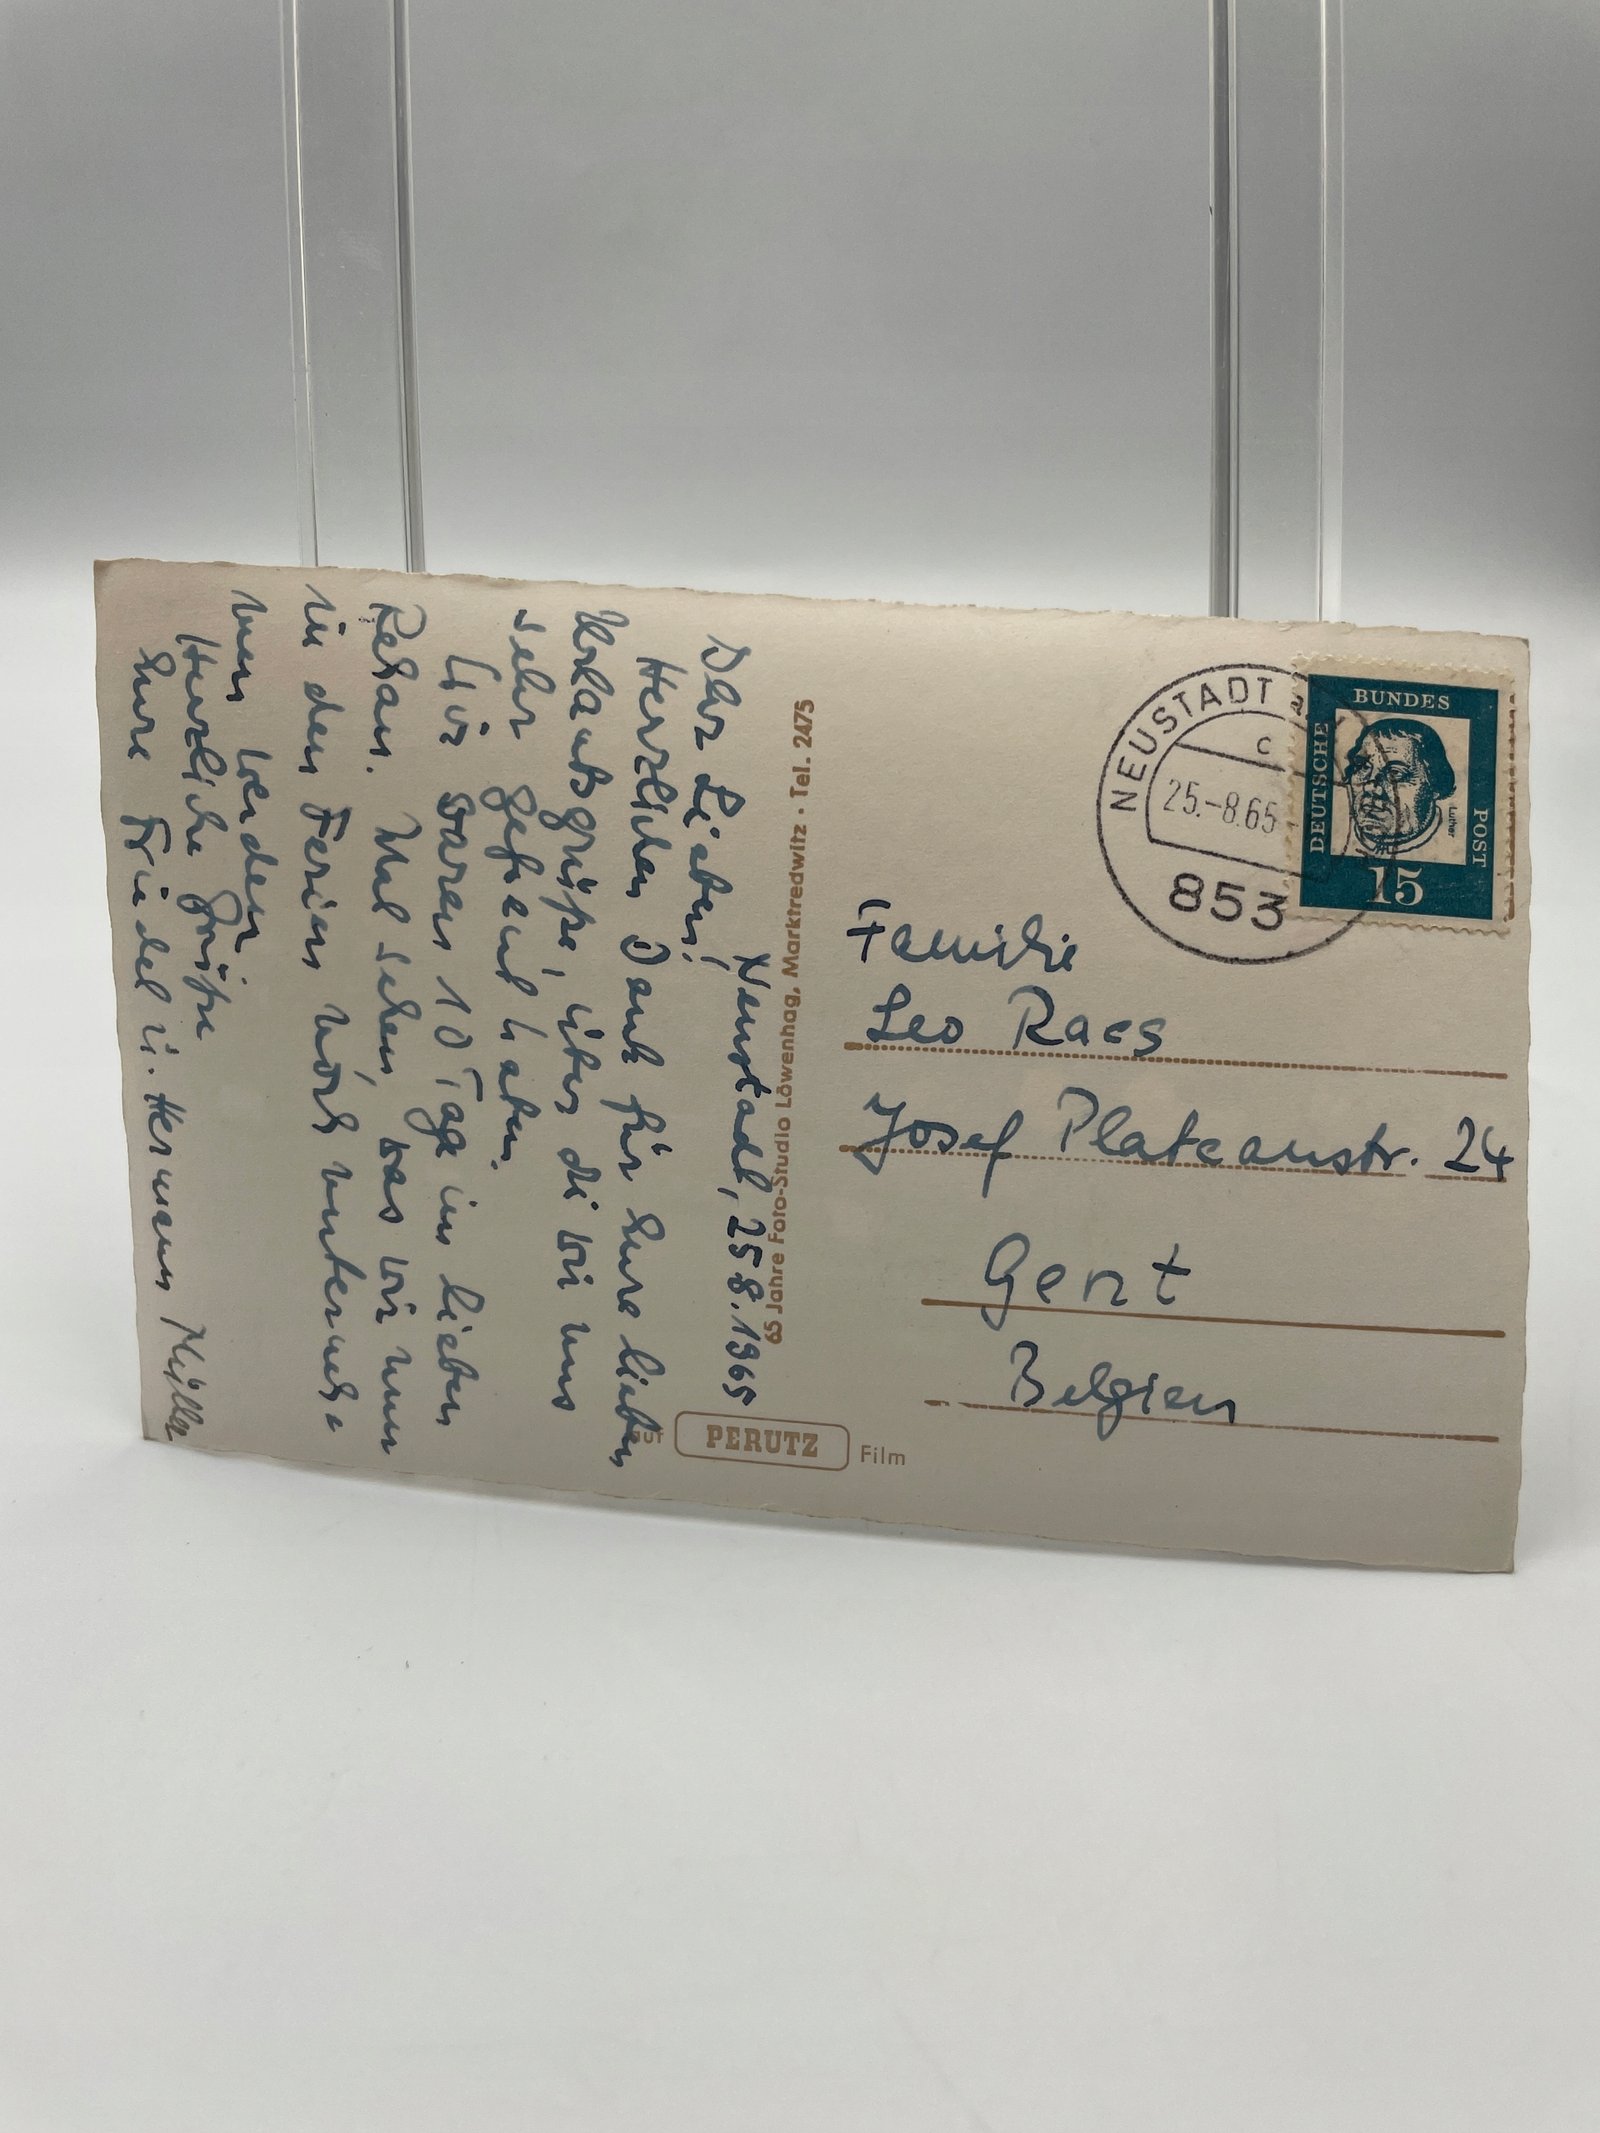 Neustadt, 25.8.1965
Ihr Lieben!
Herzlichen Dank für Eure lieben
Urlaubsgrüße, über die wir uns
sehr gefreut haben.
Wir waren 10 Tage im lieben
Rehau. Mal sehen, was wir nun
in den Ferien noch unterneh-
men werden
Herzliche Grüße
Eure Friedel u. Hermann Müller
65 Jahre Foto-Studio Löwenhag, Marktredwitz · Tel. 2475
auf PERUTZ Film
NEUSTADT
c
25.-8.65
853
DEUTSCHE BUNDES POST
Luther
15
Familie
Leo Raes
Josef Plateaustr. 24
Gent
Belgien